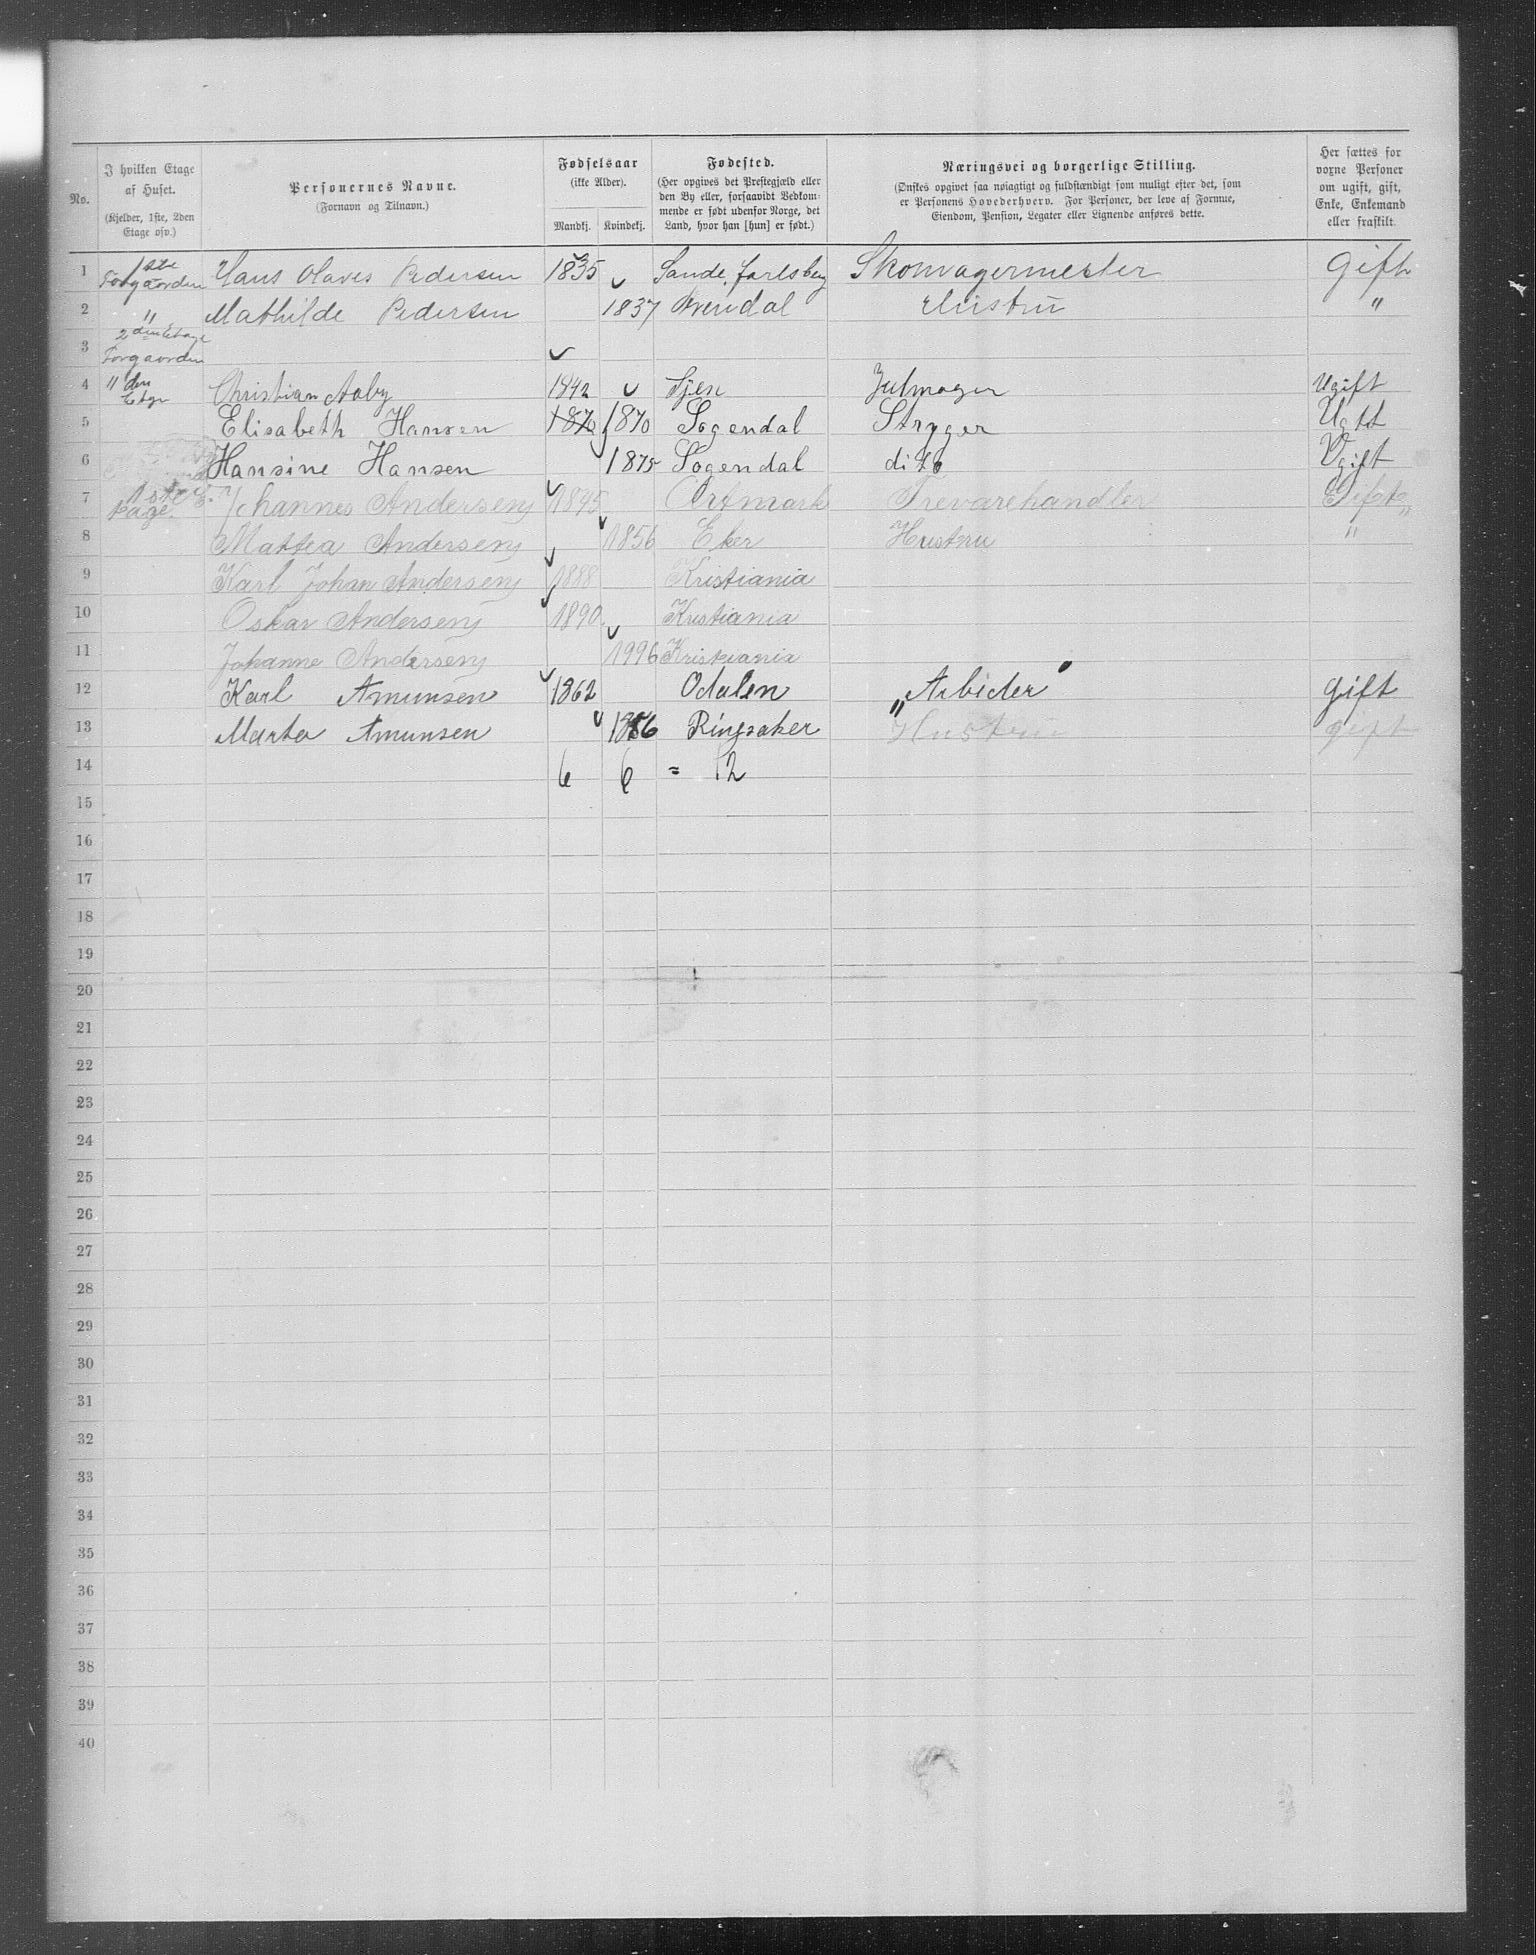 No.
I hvilken Etage af Huset.
(Kjelder, 1ste, 2den Etage osv.)
Personernes Navne.
(Fornavn og Tilnavn.)
Fødselsaar
(ikke Alder).
Mandkj. Kvindekj.
Fødested.
(Her opgives det Prestegjæld eller den By eller, forsaavidt Vedkommende er født udenfor Norge, det Land, hvor han [hun] er født.)
Næringsvei og borgerlige Stilling.
(Ønskes opgivet saa nøiagtigt og fuldstændigt som muligt efter det, som er Personens Hovederhverv. For Personer, der leve af Formue, Eiendom, Pension, Legater eller Lignende anføres dette.
Her sættes for voxne Personer om ugift, gift, Enke, Enkemand eller fraskilt.
1 1ste Forgaarden Hans Olaves Pedersen 1835 Sande, Jarlsberg Gift
2 " Mathilde Pedersen 1837 "
3 2den Etage Forgaarden
4 " den Etge Christian Aaby 1842 Ugift
5 Elisabeth Hansen 1870 1870 Sogendal Stryger Ugft
6 Hansine Hansen 1875 Sogendal dito Ugift
7 1ste Etage. Johannes Andersen 1845 Trevarehandler Gift
8 Mattea Andersen 1856 Eker Hustru "
9 Karl Johan Andersen 1888 Kristiania
10 Oskar Andersen 1890 Kristiania
11 Johanne Andersen 1996 Kristiania
12 Karl Amunsen 1862 Odalen „Arbider" gift
13 Marta Amunsen 1856 Ringsaker Hustru gift
14 6 6 = 12
15
16
17
18
19
20
21
22
23
24
25
26
27
28
29
30
31
32
33
34
35
36
37
38
39
40